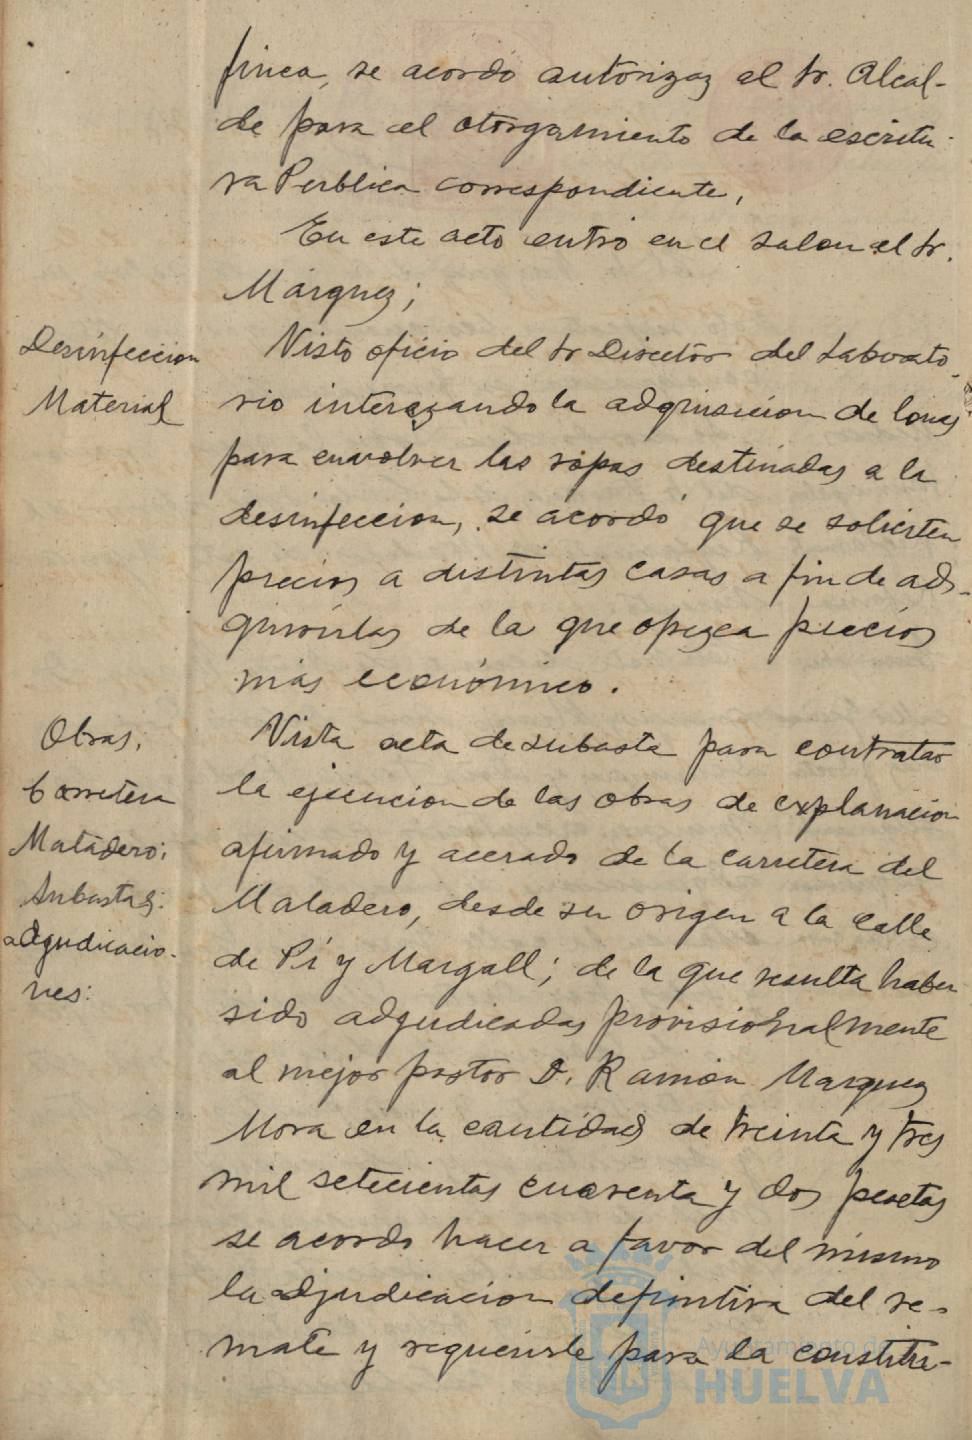 finca, se acordó autorizar al Sr. Alcal-
de para el otorgamiento de la escritu-
ra Pública correspondiente,
En este acto entró en el salon el Sr.
Márquez;
Desinfeccion
Material
Visto oficio del Sr Director del Laborato-
rio interezando la adquisicion de lonas
para envolver las ropas destinadas a la
desinfeccion, se acordó que se soliciten
precios a distintas casas a fin de ad-
quirirlas de la que ofrezca precios
más económico.
Obras.
Carretera
Matadero:
Subastas:
adjudicacio-
nes:
Vista acta de subasta para contratar
la ejecucion de las obras de explanacion
afirmado y acerado de la carretera del
Matadero, desde su origen a la calle
de Pí y Margall; de la que resulta haber
sido adjudicadas provisionalmente
al mejor postor D. Ramón Marquez
Mora en la cantidad de treinta y tres
mil setecientas cuarenta y dos pesetas
se acordó hacer a favor del mismo
la adjudicación definitiva del re-
mate y requerirle para la constitu-
Ayuntamiento de
HUELVA